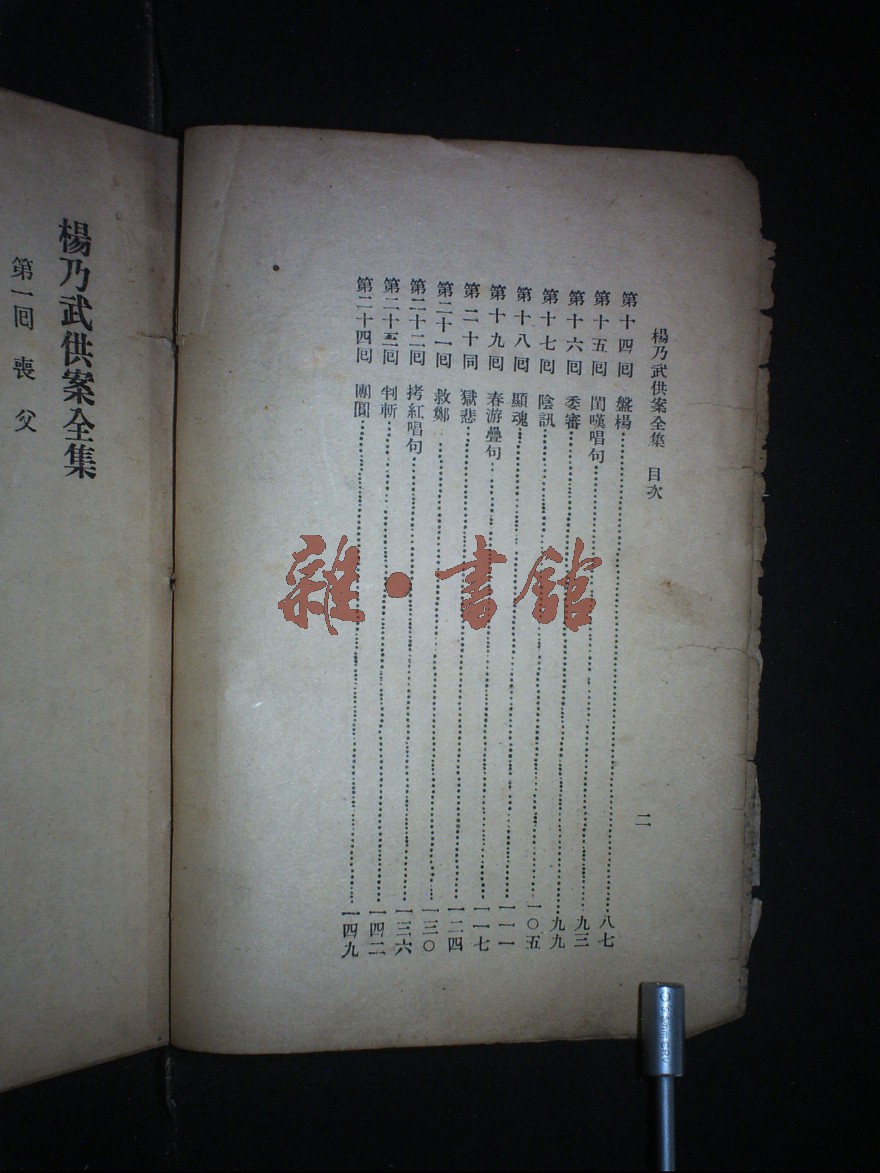 楊乃武供案全集 目次
二
第十四囘 盤楊 八七
第十五囘 閨嘆唱句 九三
第十六囘 委審 九九
第十七囘 陰訊 一〇五
第十八囘 顯魂 一一一
第十九囘 春游疊句 一一七
第二十囘 獄悲 一二四
第二十一囘 救鄭 一三〇
第二十二囘 拷紅唱句 一三六
第二十三囘 判斬 一四二
第二十四囘 團圓 一四九
楊乃武供案全集
第一囘 喪父
雜·書館